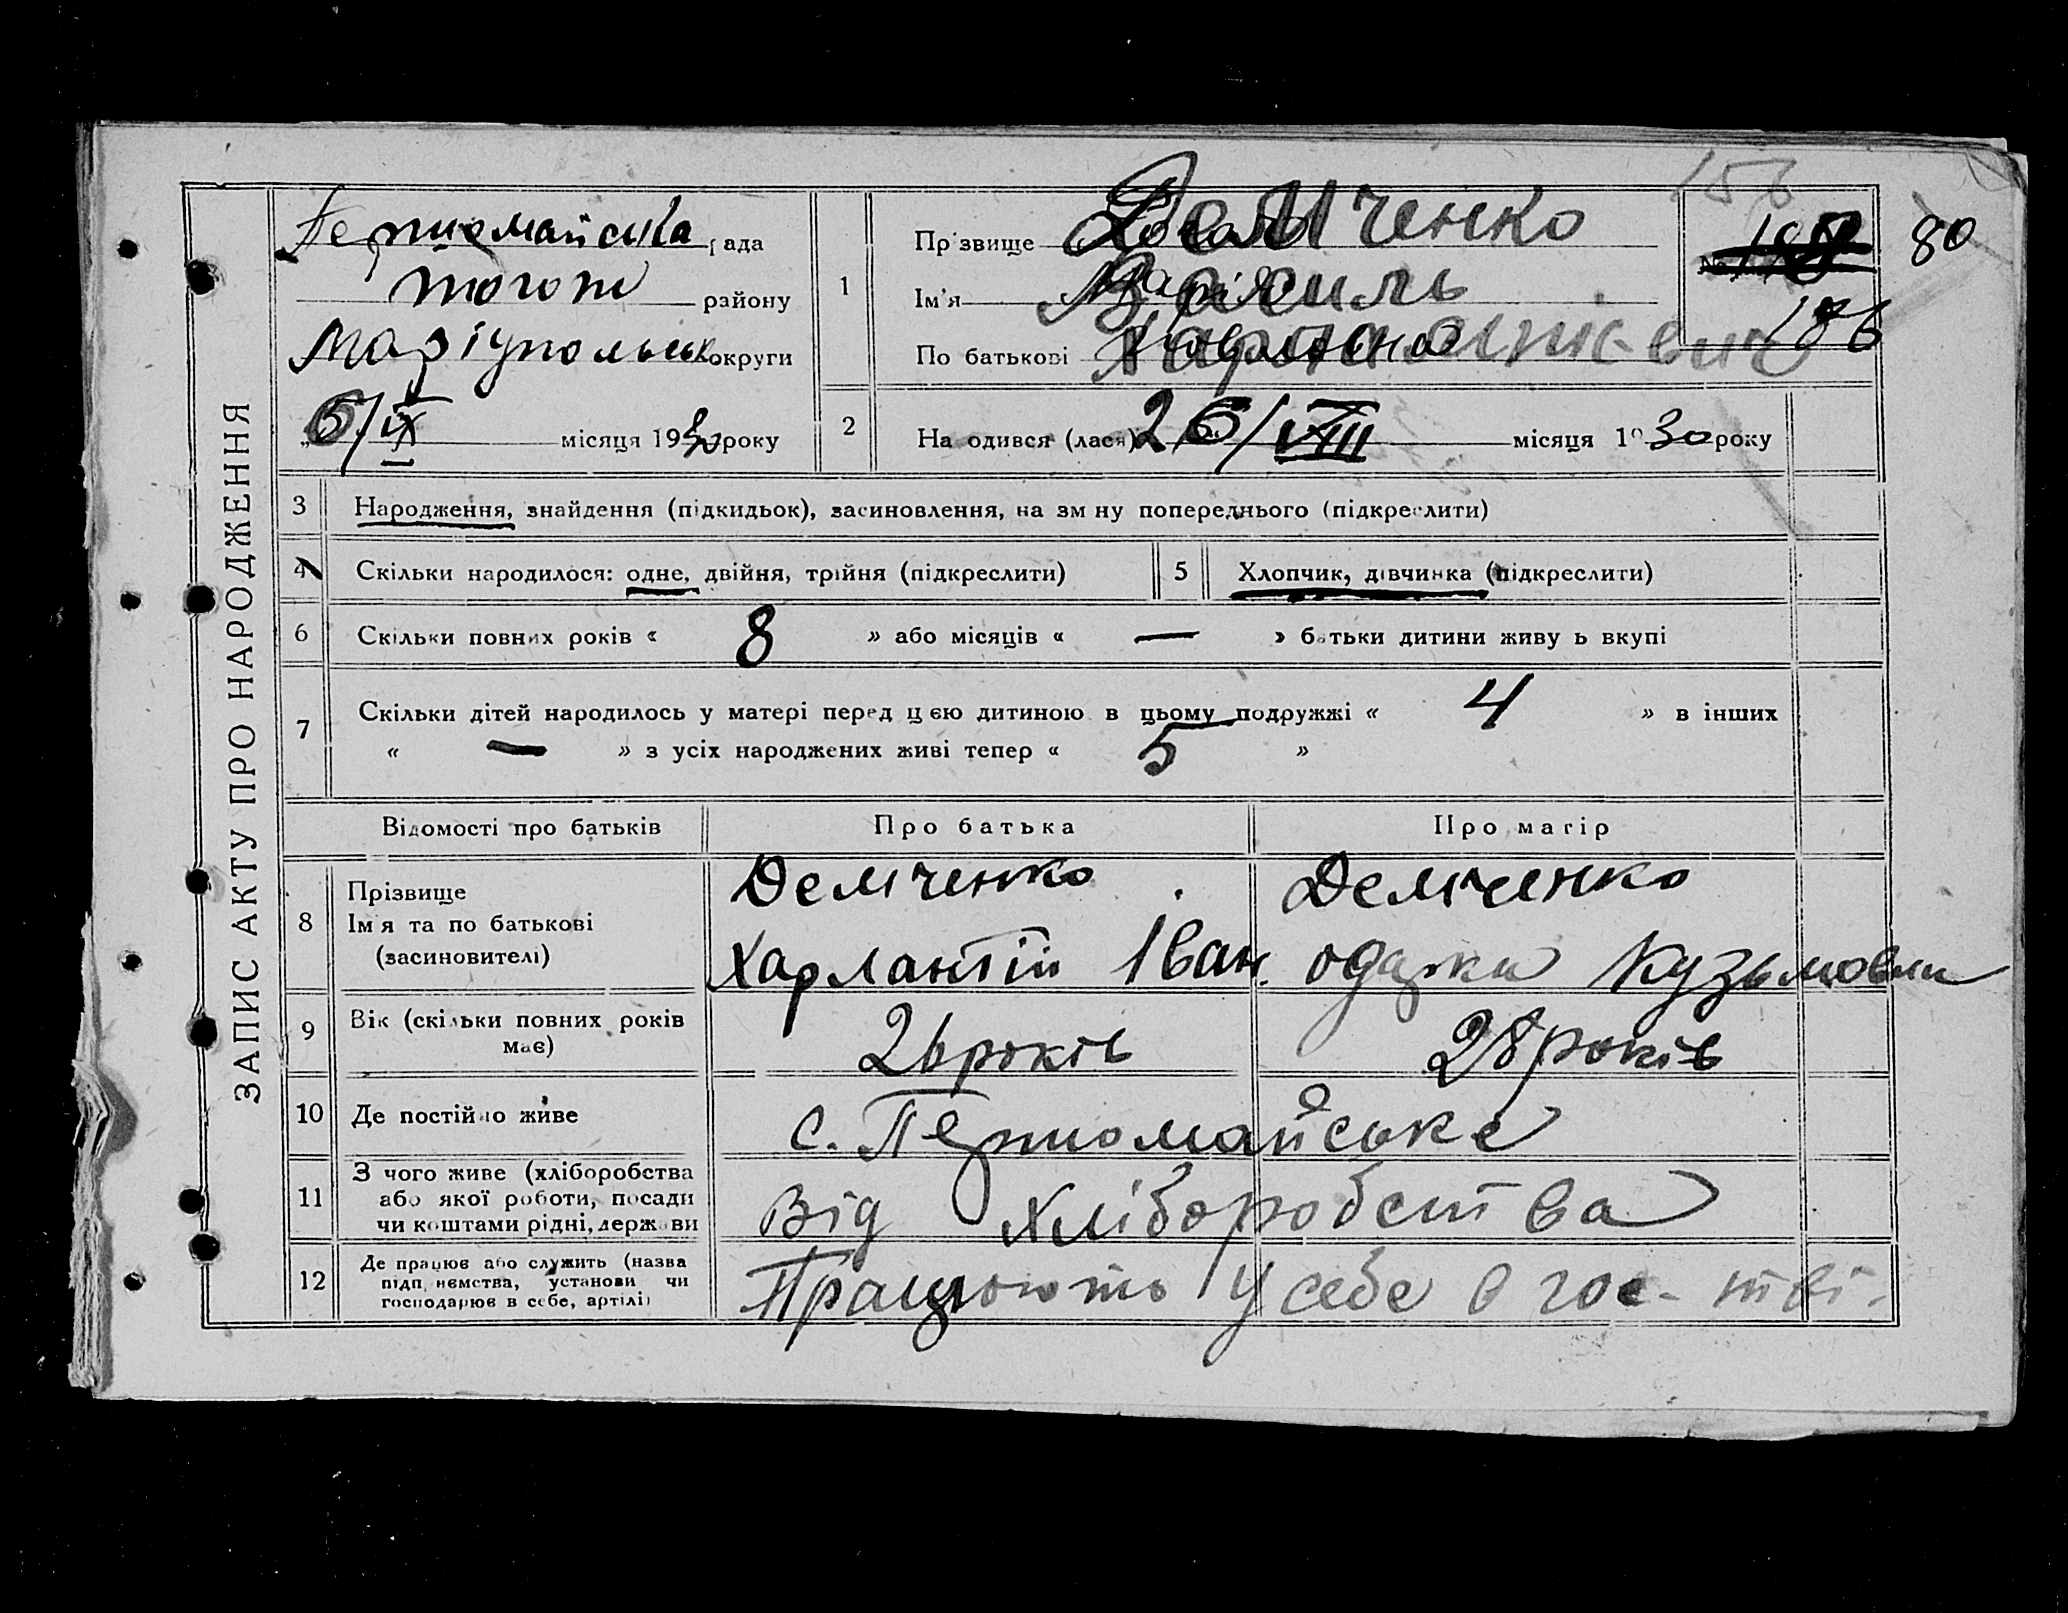 ЗАПИС АКТУ ПРО НАРОДЖЕННЯ
Першомайська рада
того ж району
Маріупольськ округи
„5/IX місяця 1930 року
1
Прізвище Демченко
Ім'я Василь
По батькові
156
80
№
186
2
На одився (лася) 26/VIII місяця 1930 року
3 Народження, знайдення (підкидьок), засиновлення, на зм ну попереднього (підкреслити)
4 Скільки народилося: одне, двійня, трійня (підкреслити)
5 Хлопчик, дівчинка (підкреслити)
6 Скільки повних років « 8 » або місяців « — » батьки дитини живу ь вкупі
7 Скільки дітей народилось у матері перед ц єю дитиною в цьому подружжі « 4 » в інших
« — » з усіх народжених живі тепер « 5 »
Відомості про батьків Про батька Про матір
8 Прізвище Демченко Демченко
Ім'я та по батькові
(засиновителі) Харлантій Іван. Одарка Кузьмовна
9 Вік (скільки повних років має) 26 років 28 років
10 Де постійно живе с. Першомайське
11 З чого живе (хліборобства
або якої роботи, посади
чи коштами рідні, держави від хліборобства
12 Де працює або служить (назва
підп иємства, установи чи
господарює в себе, артілі) Працюють у себе в гос-тві.